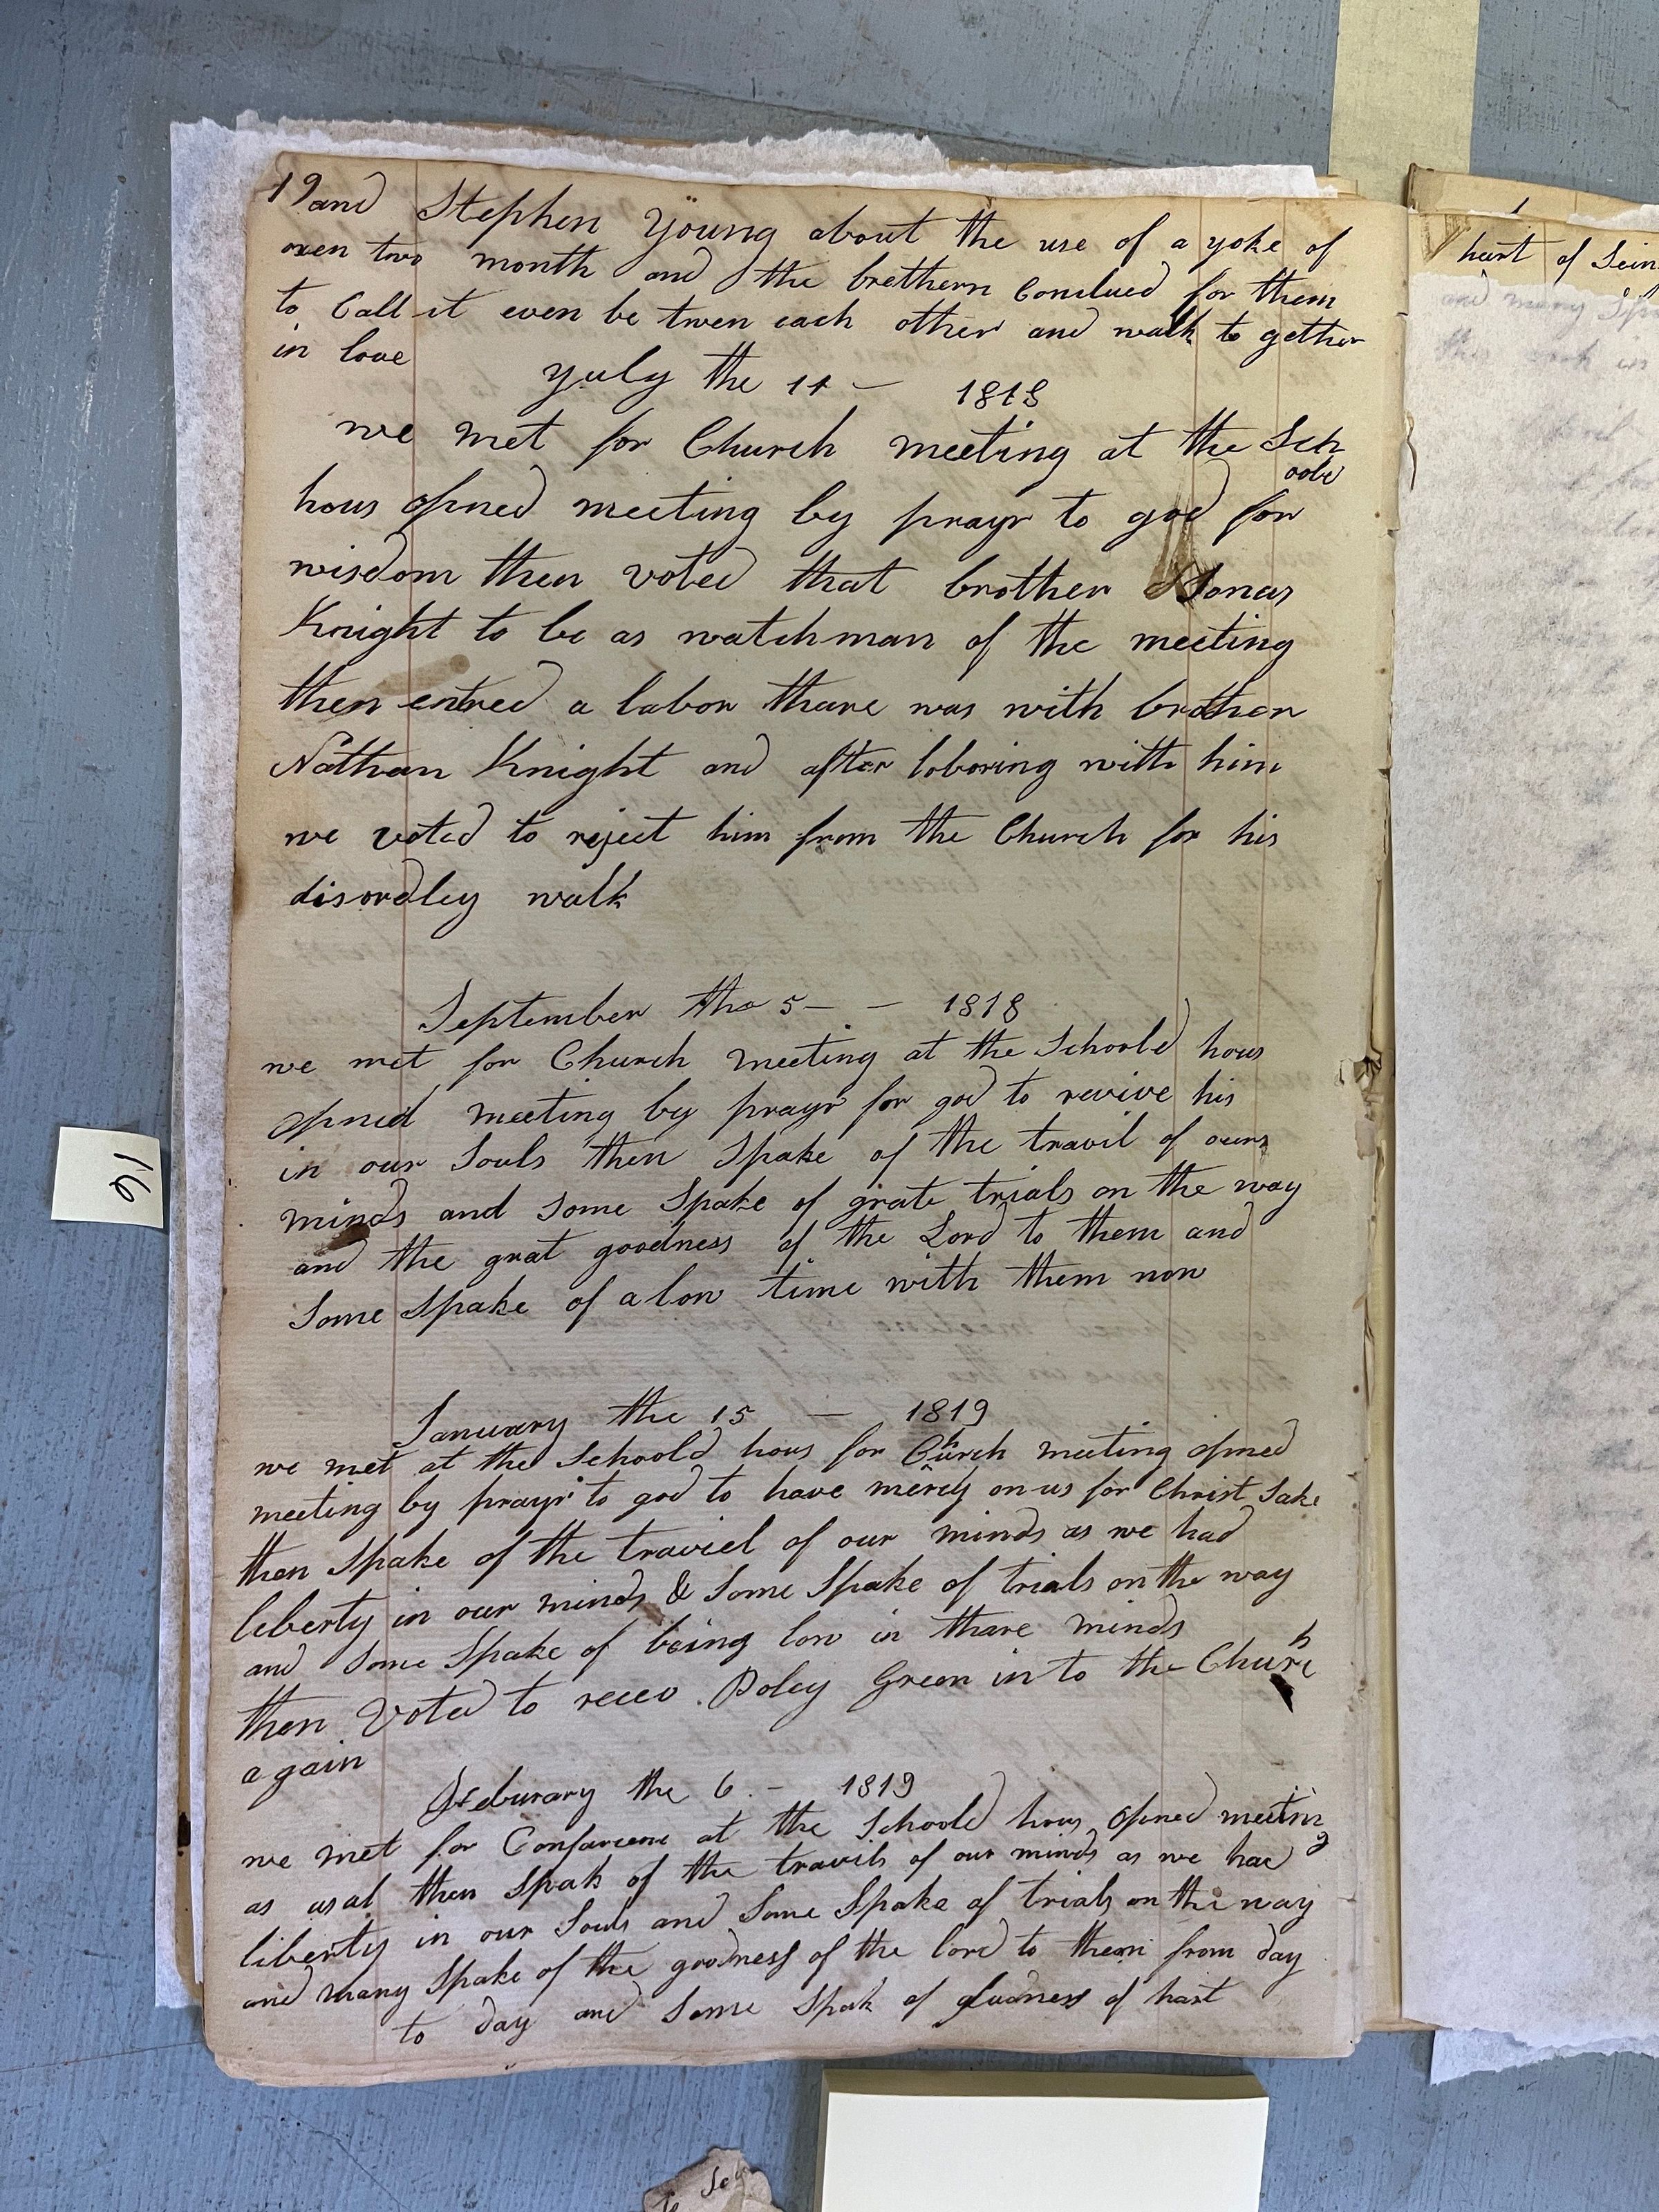 19 and Stephen Young about the use of a yoke of
oxen two month and the brethern Conclued for them
to Call it even be twen each other and walk to gether
in love
yuly the 11 — 1818
we met for Church meeting at the Sch
oold
hous opned meeting by prayr to god for
wisdom then voted that brother Jonas
Knight to be as watchman of the meeting
then entred a labor thare was with brother
Nathan Knight and after laboring with him
we voted to reject him from the Church for his
disordley walk
September the 5 — — 1818
we met for Church meeting at the Schoold hous
opned meeting by prayr for god to revive his
in our Souls then Spake of the travil of ours
minds and Some Spake of grate trials on the way
and the grat goodness of the Lord to them and
Some Spake of a low time with them now
January the 15 — 1819
we met at the Schoold hous for Church meeting opned
meeting by prayr to god to have mercy on us for Christ Sake
then Spake of the traviel of our minds as we had
leberty in our minds & Some Spake of trials on the way
and Some Spake of being low in thare minds
then Voted to recev Poley Green in to the Church
a gain
Feburary the 6 — 1819
we met for at the Schoold hous opned meeting
as usal then Spak of the travils of our minds as we had
liberty in our Souls and Some Spake of trials on the way
and many Spake of the goodness of the lord to them from day
to day and Some Spak of gladness of hart
16
hart of Sein
and many Spa